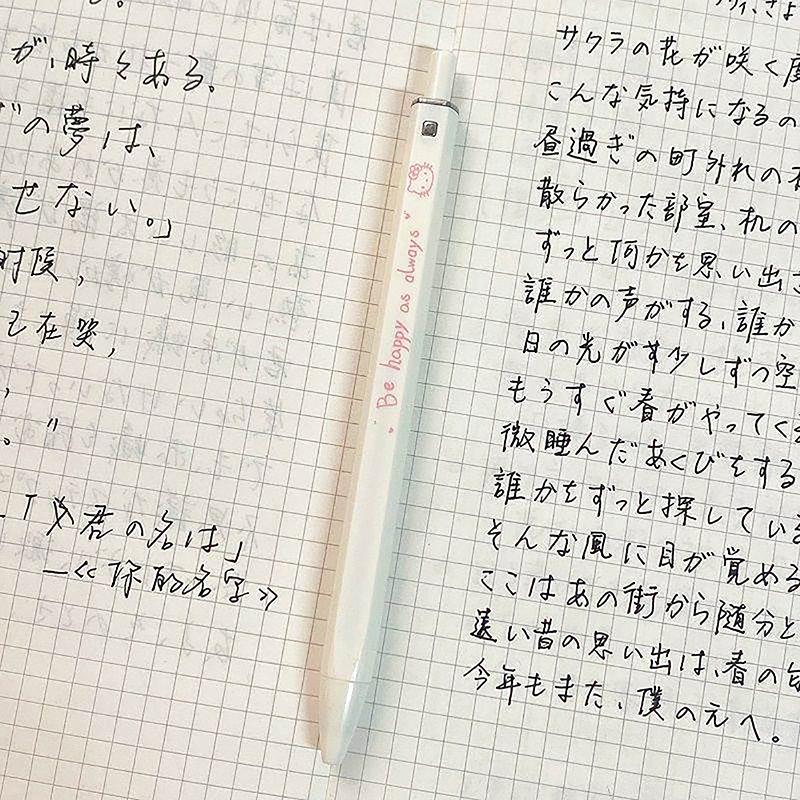 が、時々ある。
の夢は、
せない。」
时候，
在哭，
，
。"
「君の名は」
—《你的名字》
Be happy as always
サクラの花が咲く度
こんな気持になるの
昼過ぎの町外れの
散らかった部室、机の
ずっと何かを思い出さ
誰かの声がする、誰か
日の光が少しずつ空
もうすぐ春がやってく
微睡んだあくびをする
誰かをずっと探している
そんな風に目が覚める
ここはあの街から随分と
遠い昔の思い出は、春の
今年もまた、僕の元へ。